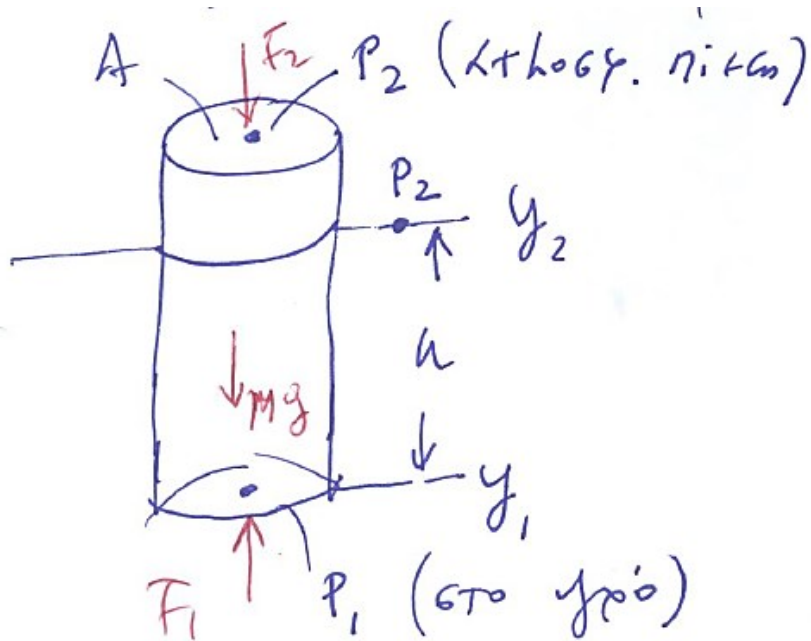 A F₂ P₂ (ατμοσφ. πίεση)
P₂ y₂
h
Mg
y₁
F₁ P₁ (στο υγρό)